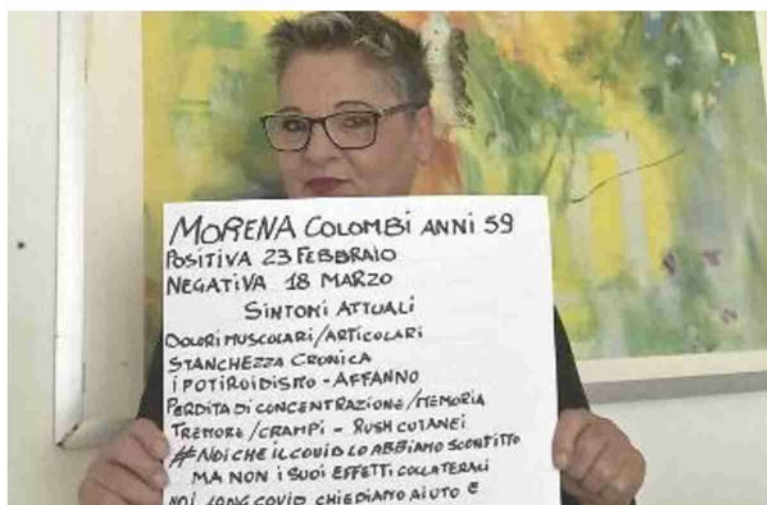 MORENA COLOMBI ANNI 59
POSITIVA 23 FEBBRAIO
NEGATIVA 18 MARZO
SINTOMI ATTUALI
DOLORI MUSCOLARI/ARTICOLARI
STANCHEZZA CRONICA
IPOTIROIDISMO - AFFANNO
PERDITA DI CONCENTRAZIONE/MEMORIA
TREMORE/CRAMPI - RUSH CUTANEI
#NOI CHE IL COVID LO ABBIAMO SCONFITTO
MA NON I SUOI EFFETTI COLLATERALI
NOI LONG COVID CHIEDIAMO AIUTO E